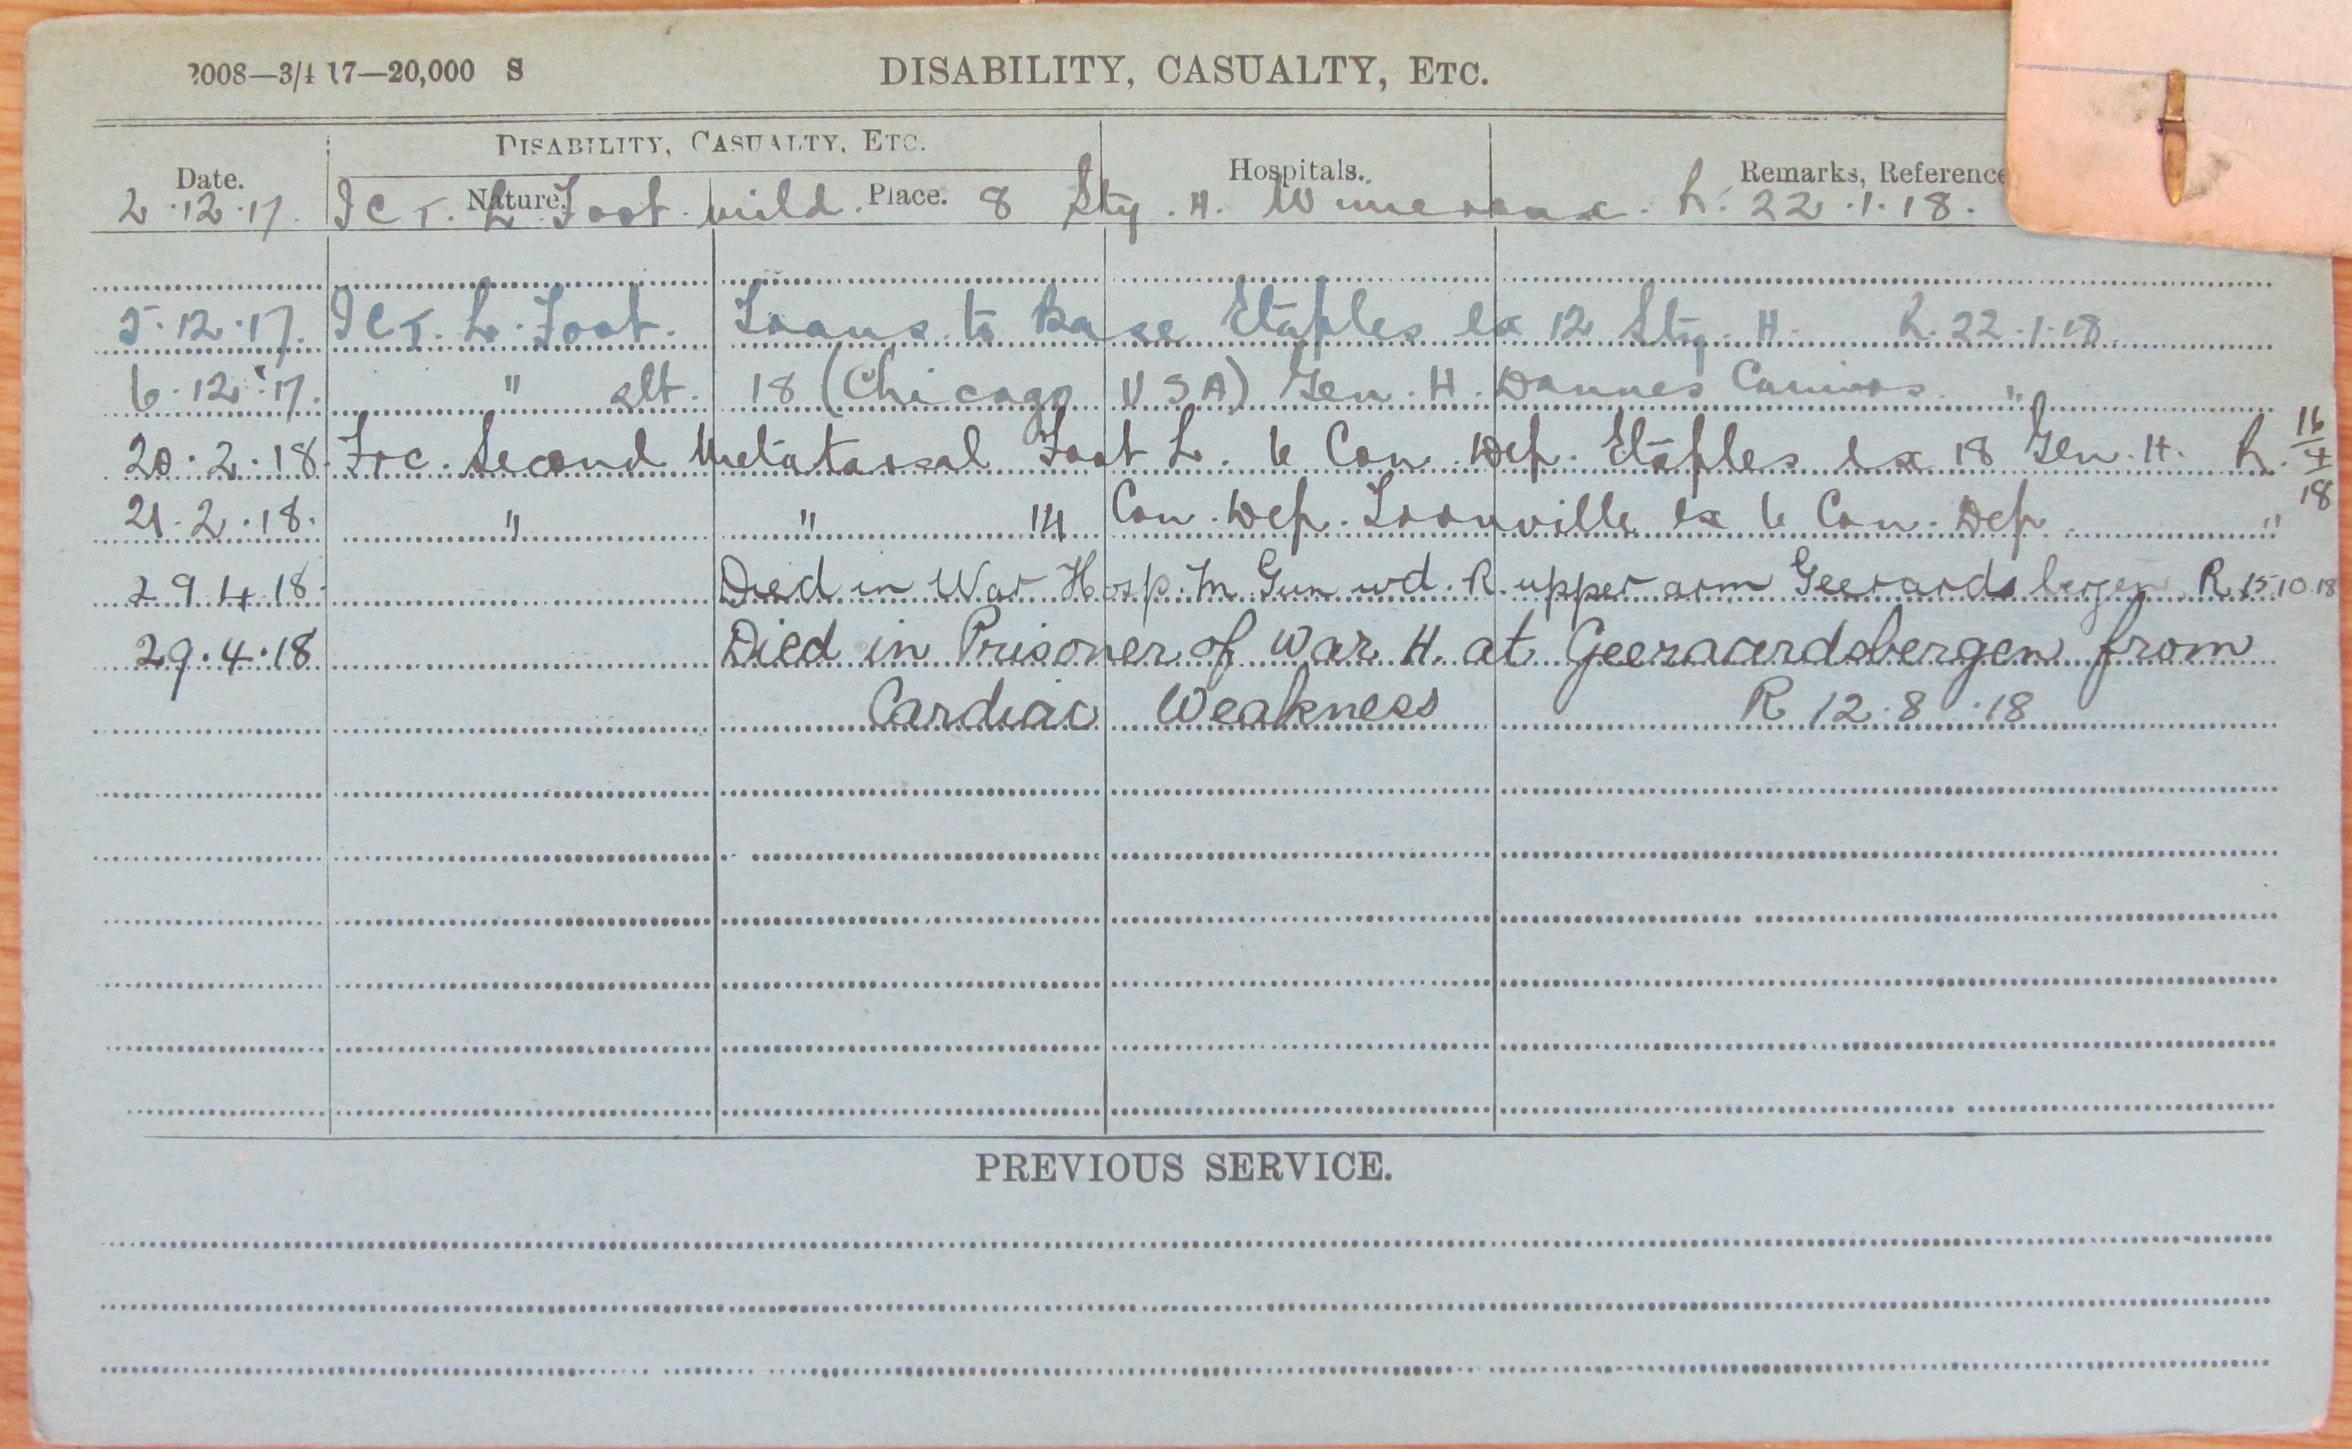 2008—3/4 17—20,000 S
DISABILITY, CASUALTY, ETC.
DISABILITY, CASUALTY, ETC.
Date. Nature. Place. Hospitals. Remarks, Reference
2.12.17. ICT. L. Foot. mild. 8 Sty. H. Wimereaux. R. 22.1.18.
5.12.17. ICT. L. Foot. Trans. to Base Etaples ex 12 Sty. H. R. 22.1.18
6.12.17. " slt. 18 (Chicago USA) Gen. H. Dannes Camiers. "
20.2.18. Frc. Second Metatarsal Foot L. 6 Con. Dep. Etaples ex 18 Gen. H. R. 16/4/18
21.2.18. " " 14 Con. Dep. Trouville ex 6 Con. Dep. "
29.4.18. Died in War Hosp. M. Gun wd. R. upper arm Geerardsbergen R 15.10.18
29.4.18 Died in Prisoner of War H. at Geeraardsbergen from
Cardiac Weakness R 12.8.18
PREVIOUS SERVICE.